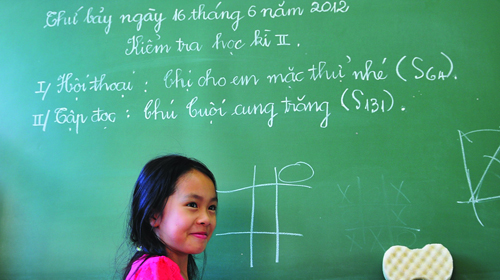 Thứ bảy ngày 16 tháng 6 năm 2012
Kiểm tra học kì II.
I/ Hội thoại : Chị cho em mặc thử nhé (S64).
II/ Tập đọc : Chú Cuội cung trăng (S131).